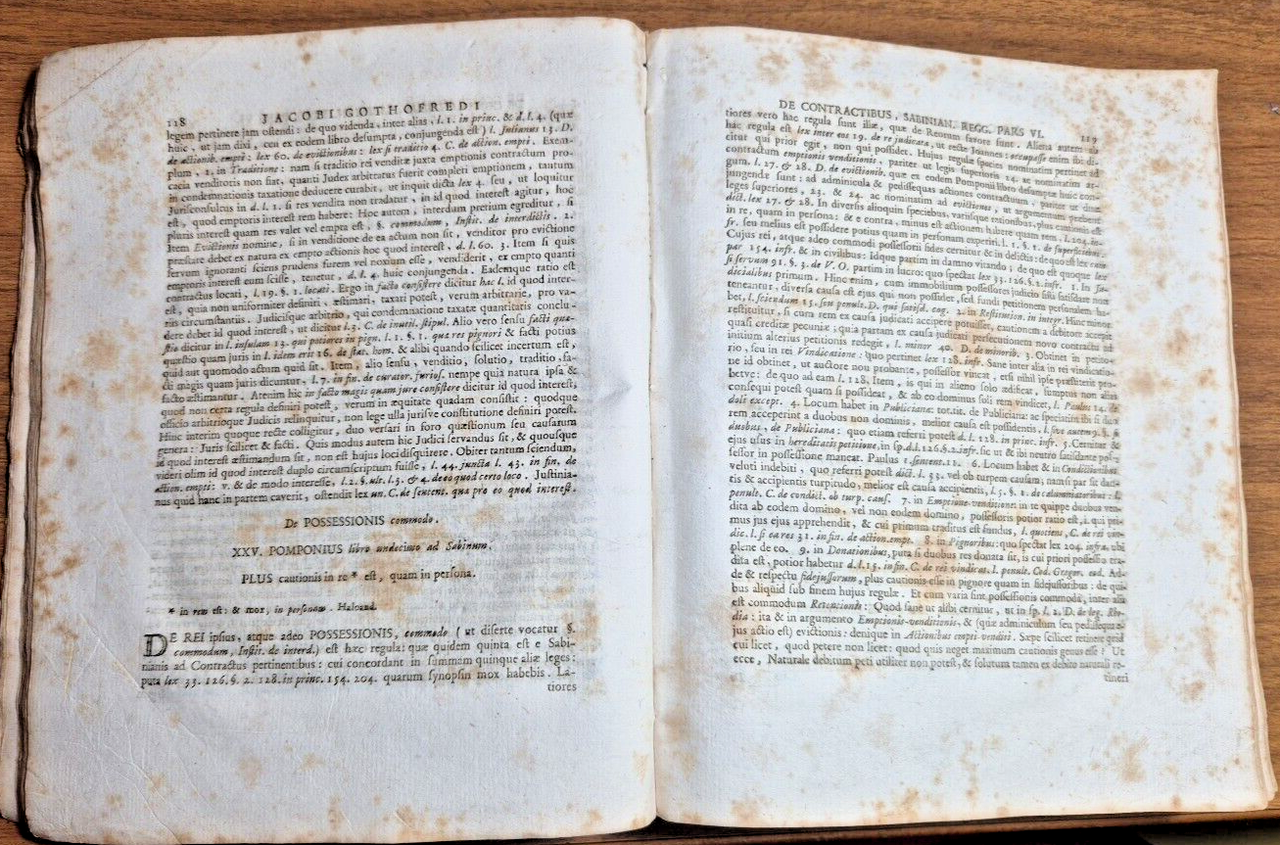 118 JACOBI GOTHOFREDI
legem pertinere jam ostendi: de quo videnda, inter alias, l. 1. in princ. & d. l. 4. (quæ
huic, ut jam dixi, ceu ex eodem libro desumpta, conjungenda est) l. Julianus 13. D.
de actionib. empti: lex 60. de evictionibus: lex si traditio 4. C. de action. empti. Exem-
plum, 1. in Traditione: nam si traditio rei venditæ juxta emptionis contractum pro-
cacia venditoris non fiat, quanti Judex arbitratus fuerit compleri emptionem, tantum
in condemnationis taxatione deducere curabit, ut inquit dicta lex 4. seu, ut loquitur
Jurisconsultus in d. l. 1. si res vendita non tradatur, in id quod interest agitur, hoc
est, quod emptoris interest rem habere: Hoc autem, interdum pretium egreditur, si
pluris interest quam res valet vel empta est, §. commodum, Instit. de interdictis. 2.
Item Evictionis nomine, si in venditione de ea actum non sit, venditor pro evictione
præstare debet ex natura ex empto actionis hoc quod interest, d. l. 60. 3. Item si quis
servum ignoranti sciens prudens furem vel noxium esse, vendiderit, ex empto quanti
emptoris interest eum scisse, tenetur, d. l. 4. huic conjungenda. Eademque ratio est
contractus locati, l. 19. §. 1. locati. Ergo in facto consistere dicitur hac l. id quod inter-
est, quia non uniformiter definiri, æstimari, taxari potest, verum arbitrarie, pro va-
riis circumstantiis. Judicisque arbitrio, qui condemnatione taxatæ quantitatis conclu-
dere debet id quod interest, ut dicitur l. 3. C. de inutil. stipul. Alio vero sensu facti quæ-
stio dicitur in l. insulam 13. qui potiores in pign. l. 1. §. 1. quæ res pignori & facti potius
quæstio quam juris in l. idem erit 16. de stat. hom. & alibi quando scilicet incertum est,
quid aut quomodo actum quid sit. Item, alio sensu, venditio, solutio, traditio, fa-
cti magis quam juris dicuntur, l. 7. in fin. de curator. furios. nempe quia natura ipsa &
facto æstimantur. Atenim hic in facto magis quam jure consistere dicitur id quod interest,
quod non certa regula definiri potest, verum in æquitate quadam consistit: quodque
officio arbitrioque Judicis relinquitur, non lege ulla jurisve constitutione definiri potest.
Hinc interim quoque recte colligitur, duo versari in foro quæstionum seu causarum
genera: Juris scilicet & facti. Quis modus autem hic Judici servandus sit, & quousque
id quod interest æstimandum sit, non est hujus loci disquirere. Obiter tantum sciendum,
videri olim id quod interest duplo circumscriptum fuisse, l. 44. juncta l. 43. in fin. de
action. empti: v. & de modo interesse, l. 2. §. ult. l. 3. & 4. de eo quod certo loco. Justinia-
nus quid hanc in partem caverit, ostendit lex un. C. de sentent. quæ pro eo quod interest.
De POSSESSIONIS commodo.
XXV. POMPONIUS libro undecimo ad Sabinum.
PLUS cautionis in re * est, quam in persona.
* in rem est: & mox, in personam. Haloand.
DE REI ipsius, atque adeo POSSESSIONIS, commodo (ut diserte vocatur §.
commodum, Instit. de interd.) est hæc regula: quæ quidem quinta est e Sabi-
nianis ad Contractus pertinentibus: cui concordant in summam quinque aliæ leges:
puta lex 33. 126. §. 2. 128. in princ. 154. 204. quarum synopsin mox habebis. La-
tiores
DE CONTRACTIBUS, SABINIAN. REGG. PARS VI. 119
tiores vero hac regula sunt illæ, quæ de Reorum favore sunt. Aliena autem ab
hac regula est lex inter eos 19. de re judicata, ut recte Joannes: occupasse enim ibi di-
citur qui prior egit, non qui possidet. Hujus regulæ species nominatim pertinet ad
contractum emptionis venditionis, pariter ut legis superioris 24. ac nominatim ar-
gum. l. 27. & 28. D. de evictionib. quæ ex eodem Pomponii libro desumptæ huic con-
jungendæ sunt: ad adminicula & pedissequas actiones contractuum, pariter ut duæ
leges superiores, 23. & 24. ac nominatim ad evictiones, ut argumentum præbent
dict. lex 27. & 28. In diversis alioquin speciebus, variisque rationibus, plus cautionis est
in re, quam in persona: & e contra, minus est actionem habere quam rem, l. 204. in-
fr. seu melius est possidere potius quam in personam experiri, l. 1. §. 1. de superficieb.
Cujus rei, atque adeo commodi possessorii fides cernitur & in delictis: de quo est lex cum
par 154. infr. & in civilibus: Idque partim in damno vitando; de quo est quoque lex
si servum 91. §. 3. de V. O. partim in lucro: quo spectat lex 33. 126. §. 2. infr. 1. In Ju-
dicialibus primum. Hinc enim, cum immobilium possessores judicio sisti satisdare non
teneantur, diversa causa est ejus qui non possidet, sed fundi petitionem personalem ha-
bet, l. sciendum 15. seu penult. D. qui satisd. cog. 2. in Restitution. in integr. Hinc minor
restituitur, si cum rem ex causa judicati accipere potuisset, cautionem a debitore accepit
quasi creditæ pecuniæ; quia partam ex causa judicati persecutionem novo contractu
initium alterius petitionis redegit, l. minor 40. D. de minorib. 3. Obtinet in petito-
rio, seu in rei Vindicatione: quo pertinet lex 128. infr. Sane inter rei vindicatio-
ne id obtinet, ut auctore non probante, possessor vincat, etsi nihil ipse præstiterit pro-
betve: de quo ad eam l. 128. Item, is qui in alieno solo ædificat, sumptus non alias
consequi potest quam si possideat, & ab eo dominus soli rem vindicet, l. Paulus 14. de
doli except. 4. Locum habet in Publiciana: tot. tit. de Publiciana: ac speciatim ibi si duo
rem acceperint a duobus non dominis, melior causa est possidentis, l. sive autem 9. §. si
duobus, de Publiciana: quo etiam referri potest d. l. 128. in princ. infr. 5. Cernitur &
ejus usus in hereditatis petitione, in sp. d. l. 126. §. 2. infr. sic ut & ibi neutro satisdante pos-
sessor in possessione maneat. Paulus 1. sentent. 11. 6. Locum habet & in Condictionibus
veluti indebiti, quo referri potest dict. l. 33. vel ob turpem causam; nam si par sit dan-
tis & accipientis turpitudo, melior est causa accipientis, l. 5. §. 1. de calumniatoribus: l.
penult. C. de condict. ob turp. caus. 7. in Emptione-venditione: in te quippe duobus ven-
dita ab eodem domino, vel non eodem domino, possessoris potior ratio est, i. qui pri-
mus jus ejus apprehendit, & cui primum traditus est fundus, l. quotiens, C. de rei vin-
dic. l. si ea res 31. in fin. de action. empt. 8. in Pignoribus: quo spectat lex 204. infra, ubi
plene de eo. 9. in Donationibus, puta si duobus res donata sit, is cui priori possessio tra-
dita est, potior habetur d. l. 15. in fin. C. de rei vindicat. l. penult. Cod. Gregor. eod. Ad-
de & respectu fidejussorum, plus cautionis esse in pignore quam in fidejussoribus: de qui-
bus aliquid sub finem hujus regulæ. Et cum varia sint possessionis commoda, inter alia
est commodum Retentionis: Quod sane ut alibi cernitur, ut in sp. l. 2. D. de leg. Rho-
dia: ita & in argumento Emptionis-venditionis, & (quæ adminiculum seu pedissequa e-
jus actio est) evictionis: denique in Actionibus empti venditi. Sæpe scilicet retinere quid
cui licet, quod petere non licet: quod quis neget maximum cautionis genus esse? Ut
ecce, Naturale debitum peti utiliter non potest, & solutum tamen ex debito naturali re-
tineri